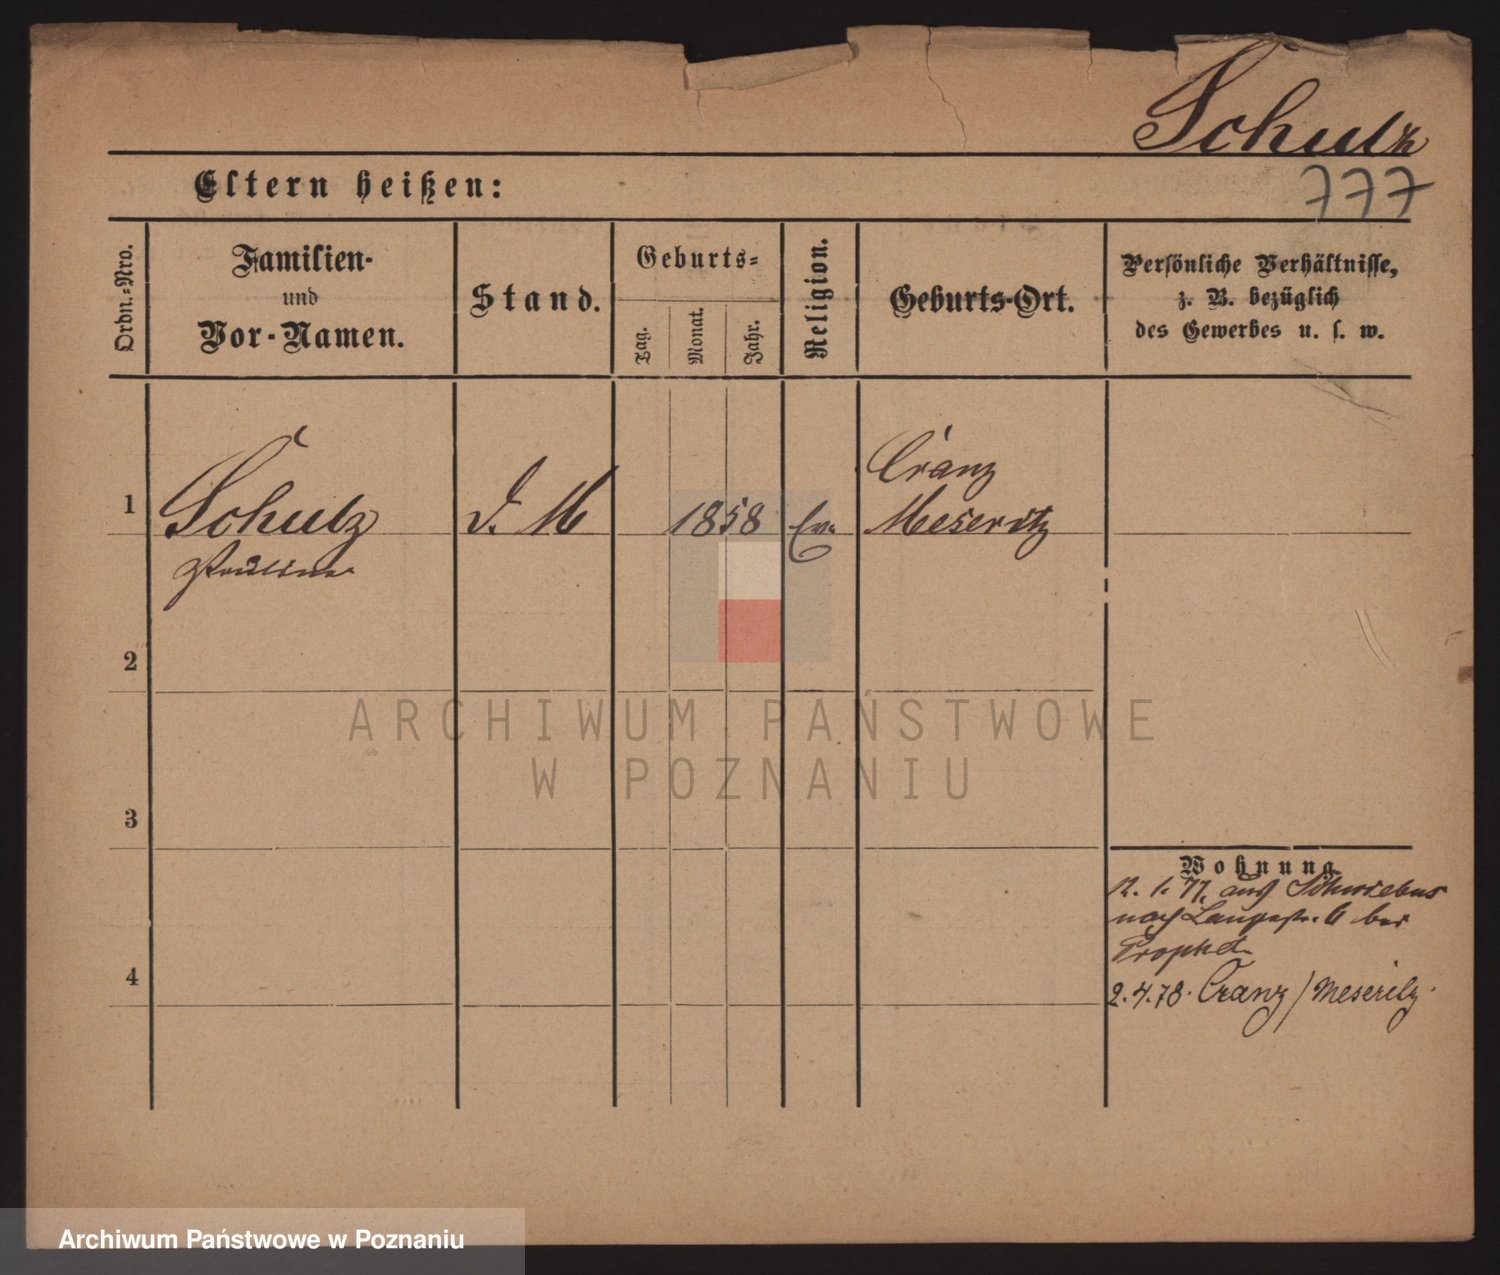 Schulz
777
Eltern heißen:
Ordn.-Nro.
Familien-
und
Vor-Namen.
Stand.
Geburts-
Tag.
Monat.
Jahr.
Religion.
Geburts-Ort.
Persönliche Verhältnisse,
z. B. bezüglich
des Gewerbes u. s. w.
1
Schulz
Pauline
D. M
1858
Ev.
Cranz
Meseritz
2
3
4
Wohnung.
12. 1. 77. aus Schwiebus
nach Langestr. 6 bei
Prophet
2.4.78. Cranz / Meseritz.
ARCHIWUM PAŃSTWOWE
W POZNANIU
Archiwum Państwowe w Poznaniu